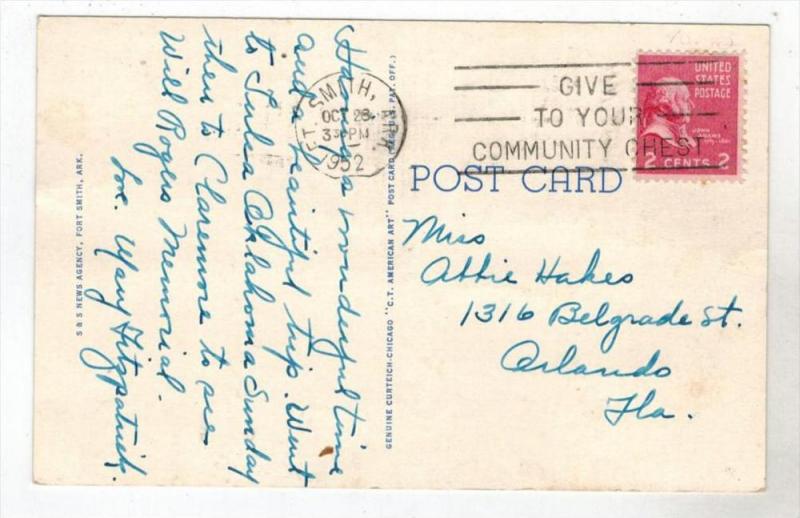 Having a wonderful time
and a beautiful trip. Went
to Tulsa Oklahoma Sunday
then to Claremore to see
Will Rogers Memorial.
Love. Mary Fitzpatrick.
S & S NEWS AGENCY, FORT SMITH, ARK.
FT. SMITH, ARK.
OCT 28
3 30 PM
1952
GIVE
TO YOUR
COMMUNITY CHEST
UNITED
STATES
POSTAGE
JOHN
ADAMS
2 CENTS 2
POST CARD
GENUINE CURTEICH-CHICAGO "C.T. AMERICAN ART" POST CARD (REG. U.S. PAT. OFF.)
Miss
Abbie Hakes
1316 Belgrade St.
Orlando
Fla.